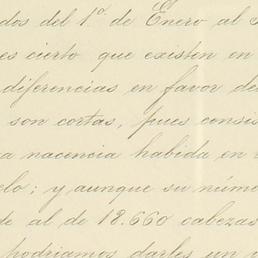 dos del 1.º de Enero al 3
es cierto que existen en
diferencias en favor de
son cortas, pues consis
a nacencia habida en
elo; y aunque su núme
de al de 18.660 cabezas
podriamos darles un